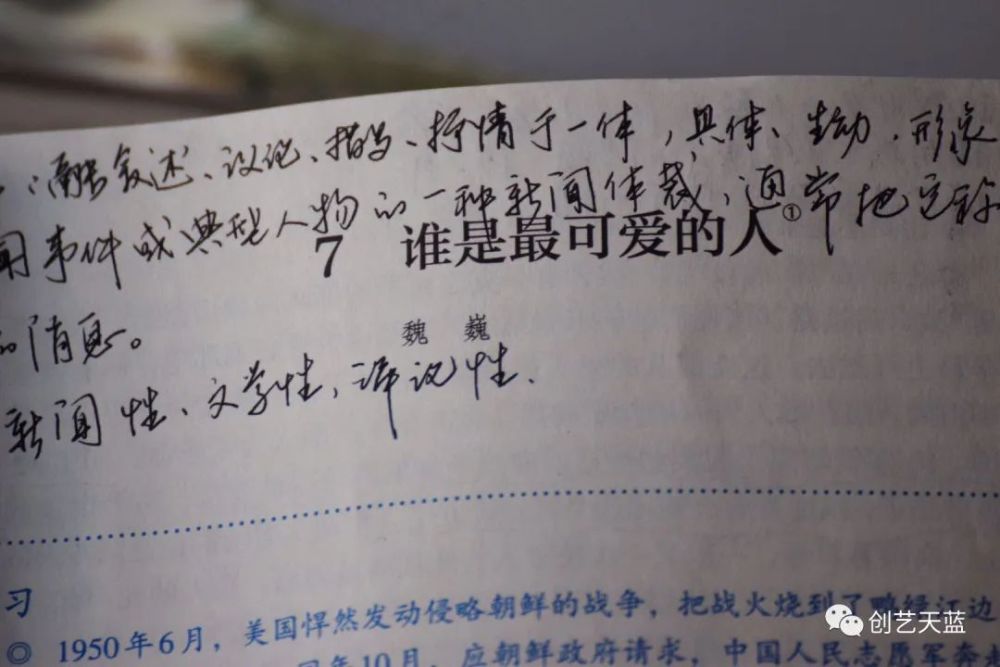 ：融叙述、议论、描写、抒情于一体，具体、生动、形象
闻事件或典型人物的一种新闻体裁，通常把它称
7 谁是最可爱的人①
的消息。
魏 巍
新闻性、文学性、评议性.
习
◎ 1950年6月，美国悍然发动侵略朝鲜的战争，把战火烧到了鸭绿江边
年10月，应朝鲜政府请求，中国人民志愿军奔赴
创艺天蓝